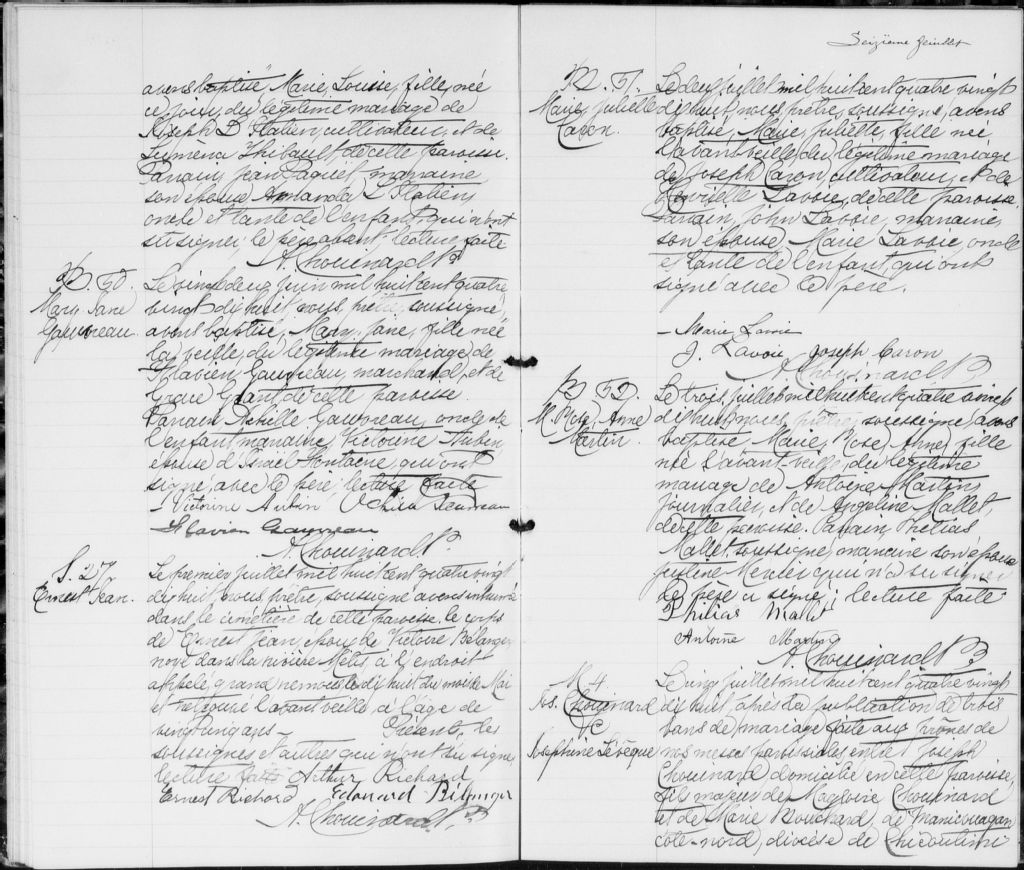 avons baptisé Marie, Louise, fille, née
ce jour, du légitime mariage de
Joseph D. Italien, cultivateur, et de
Luména Thibault, de cette paroisse.
Parrain, Jean Paquet, marraine
son épouse Amanda L'Italien,
oncle et tante de l'enfant qui n'ont
su signer; le père absent, lecture faite
A. Chouinard Ptre
B. 50.
Mary Jane
Gauvreau.
Le vingt deux Juin mil huit cent quatre
vingt dix huit nous, prêtre, soussigné,
avons baptisé, Mary, Jane, fille née
la veille, du légitime mariage de
Flavien Gauvreau, marchand, et de
Grace Grant de cette paroisse.
Parrain Achille Gauvreau, oncle de
l'enfant, marraine, Victorine Aubin,
épouse d'Israël Fontaine, qui ont
signé, avec le père, lecture faite
Victorine Aubin
Flavien Gauvreau
A. Chouinard Ptre
S. 27
Ernest Jean.
Le premier juillet mil huit cent quatre vingt
dix huit nous, prêtre, soussigné avons inhumé
dans le cimetière de cette paroisse, le corps
de Ernest Jean, époux de Victoire Bélanger
noyé dans la rivière Métis, à l'endroit
appelé, grand remous le dix huit du mois de Mai
et retrouvé l'avant veille, à l'âge de
vingt cinq ans. Présents, les
soussignés et autres qui n'ont su signer
lecture faite Arthur Richard
Ernest Richard Edouard Bélanger
A. Chouinard Ptre
Seizième feuillet
B. 51.
Marie, Juliette
Caron.
Le deux juillet mil huit cent quatre vingt
dix huit, nous, prêtre, soussigné, avons
baptisé, Marie, Juliette, fille née
l'avant veille, du légitime mariage
de Joseph Caron cultivateur, et de
Lavoie, de cette paroisse.
Parrain, John Lavoie, marraine,
son épouse, Marie Lavoie, oncle
et tante de l'enfant, qui ont
signé avec le père.
Marie Lavoie
J. Lavoie Joseph Caron
A. Chouinard Ptre
B 52.
M. Rose, Anne
Martin.
Le trois, juillet mil huit cent quatre vingt
dix huit, nous, prêtre, soussigné, avons
baptisé Marie, Rose, Anne, fille
née l'avant veille, du légitime
mariage de Antoine Martin,
journalier, et de Angéline Mallet,
de cette paroisse. Parrain, Philias
Mallet, soussigné, marraine son épouse
Justine Mercier qui n'a su signer
le père a signé; lecture faite
Philias Mallet
Antoine Martin
A. Chouinard Ptre
M 4
Jos. Chouinard
&
Joséphine Lévèque
Le cinq juillet mil huit cent quatre vingt
dix huit, après la publication de trois
bans de mariage faite aux prônes de
nos messes paroissiales entre Joseph
Chouinard domicilié en cette paroisse,
fils majeur de Magloire Chouinard
et de Marie Bouchard, de Manicouagan
côte-nord, diocèse de Chicoutimi